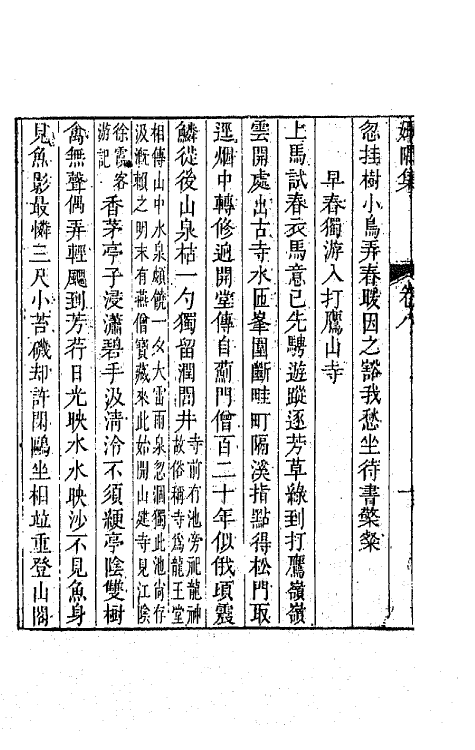 集
卷八
忽挂樹小鳥弄春暖因之豁我愁坐待書檠燦
早春獨游入打鷹山寺
上馬試春衣馬意已先騁遊蹤逐芳草綠到打鷹嶺嶺
雲開處出古寺水匝峯圍斷畦町隔溪指點得松門取
逕烟中轉修迥開堂傳自薊門僧百二十年似俄頃震
鱗從後山泉枯一勺獨留潤問井寺前有池旁祀龍神故俗稱寺爲龍王堂
相傳山中水泉頗饒一夕大雷雨泉忽涸獨此池尙存
汲漑賴之明末有燕僧寶藏來此始開山建寺見江陰
徐霞客游記香茅亭子浸瀟碧手汲淸泠不須綆亭陰雙樹
禽無聲偶弄輕颸到芳荇日光映水水映沙不見魚身
見魚影最憐三尺小苔磯却許閑鷗坐相並重登山閣